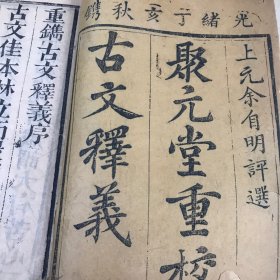 光緒丁亥秋鐫
上元余自明評選
聚元堂重校
古文釋義
重鐫古文釋義序
古文佳本林立